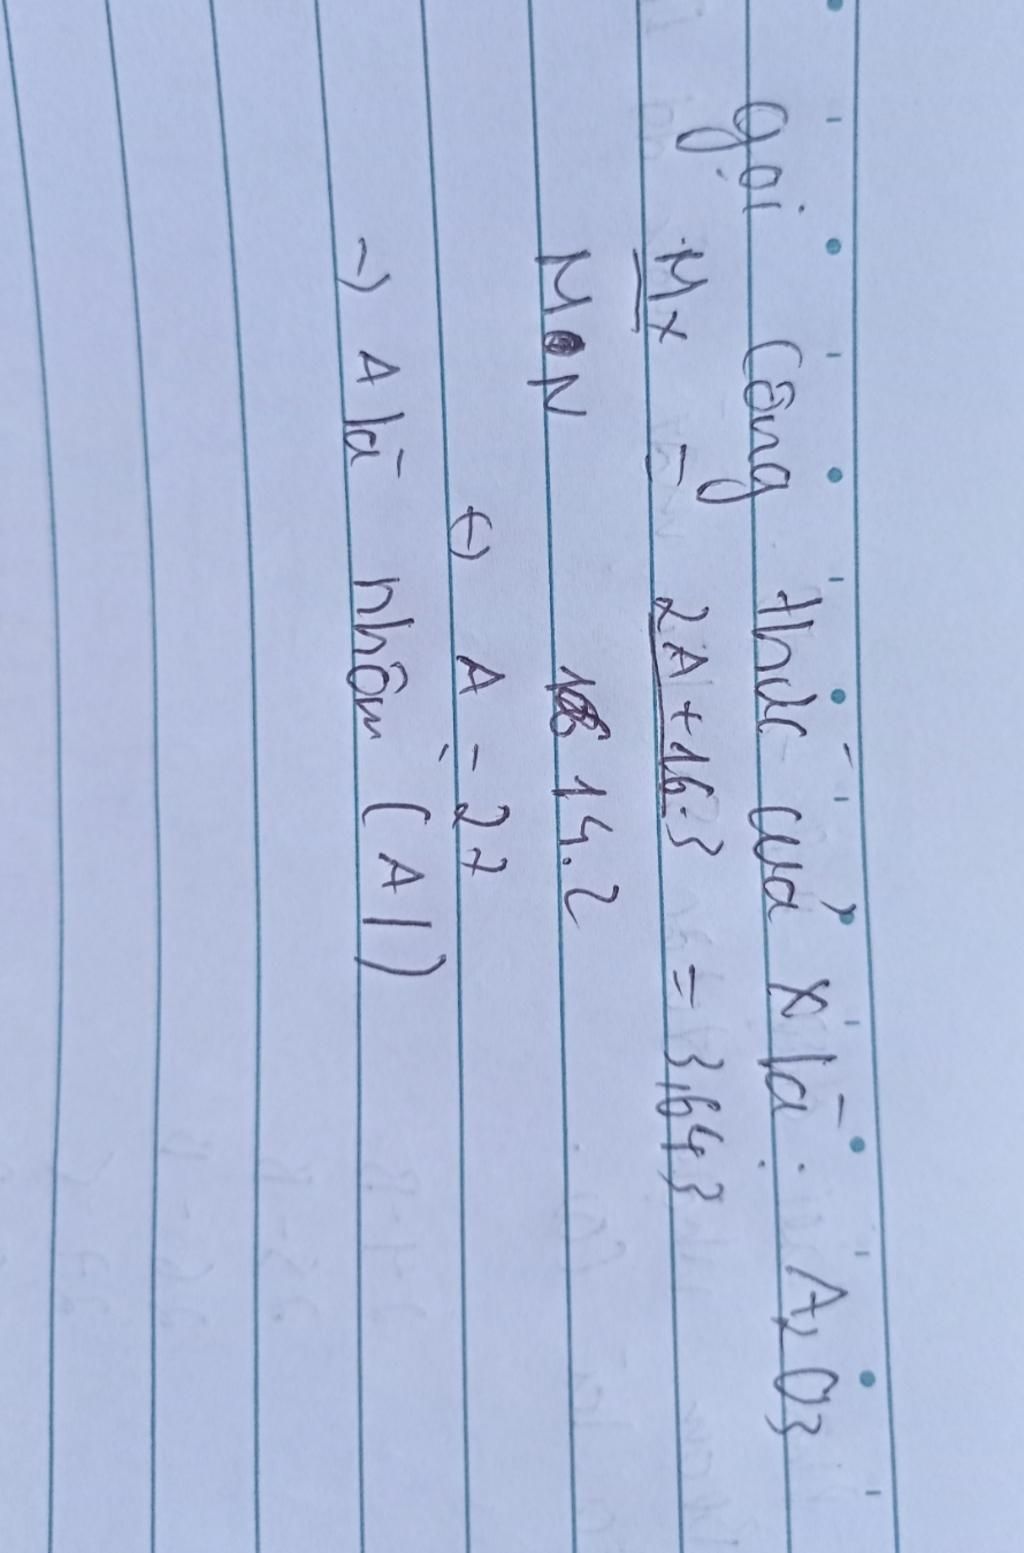 gọi công thức của X là: A2O3
Mx = 2A+16.3 = 3,643
MN 14.2
(-) A = 27
-) A là nhôm (Al)